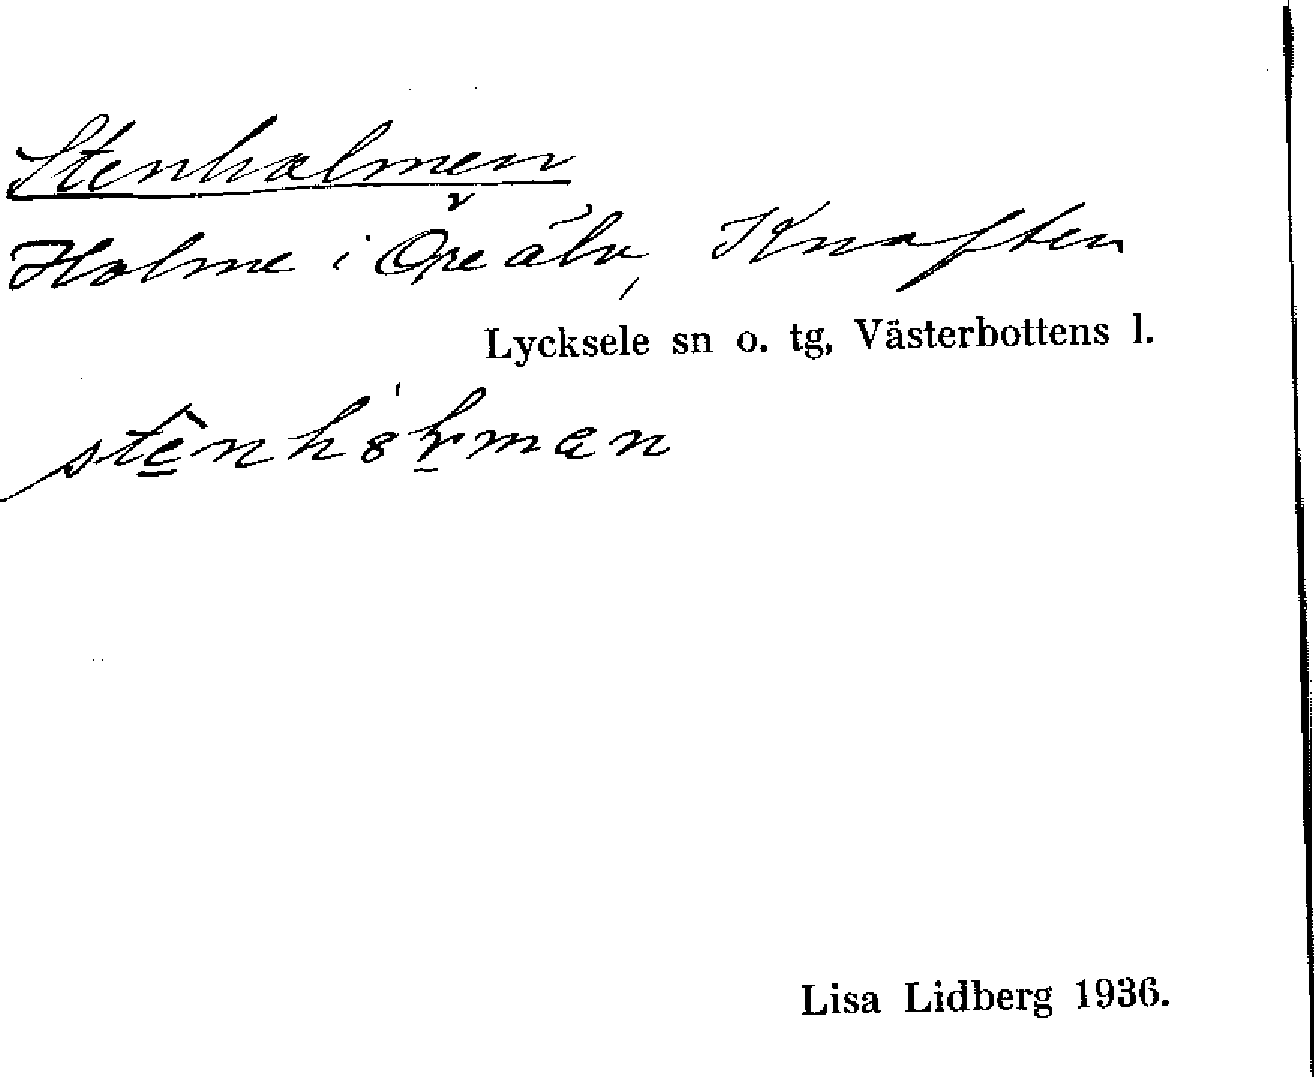 Stenholmen
Holme i Öre älv, Knaften
Lycksele sn o. tg, Västerbottens l.
Lisa Lidberg 1936.